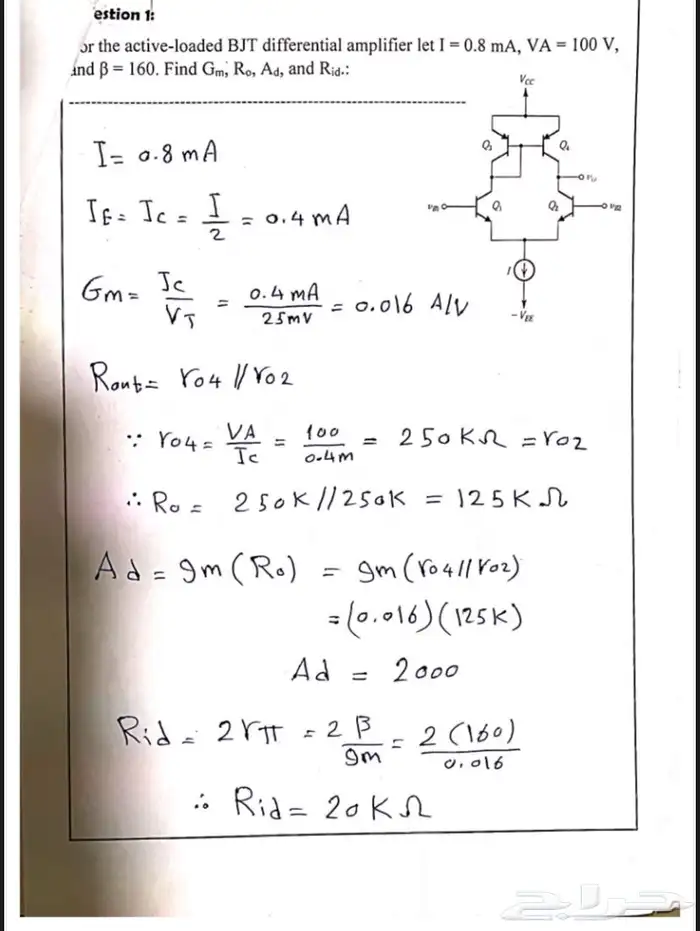 estion 1:
or the active-loaded BJT differential amplifier let I = 0.8 mA, VA = 100 V,
and β = 160. Find Gm, Ro, Ad, and Rid.:
VCC
Q3 Q4
Q1 Q2
I
-VEE
I = 0.8 mA
IE = IC = I/2 = 0.4 mA
Gm = IC/VT = 0.4 mA/25mV = 0.016 A/V
Rout = ro4 // ro2
∵ ro4 = VA/IC = 100/0.4m = 250 KΩ = ro2
∴ Ro = 250K // 250K = 125 KΩ
Ad = gm (Ro) = gm (ro4 // ro2)
= (0.016) (125K)
Ad = 2000
Rid = 2rπ = 2 β/gm = 2 (160)/0.016
∴ Rid = 20 KΩ
حراج